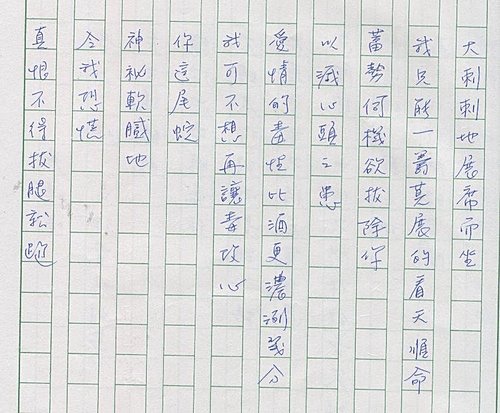 大剌剌地展席而坐
我只能一籌莫展的看天順命
蓄勢伺機欲拔除你
以滅心頭之患
愛情的毒性比酒更濃洌幾分
我可不想再讓毒攻心
你這尾蛇
神祕軟膩地
令我恐慌
真恨不得拔腿跑